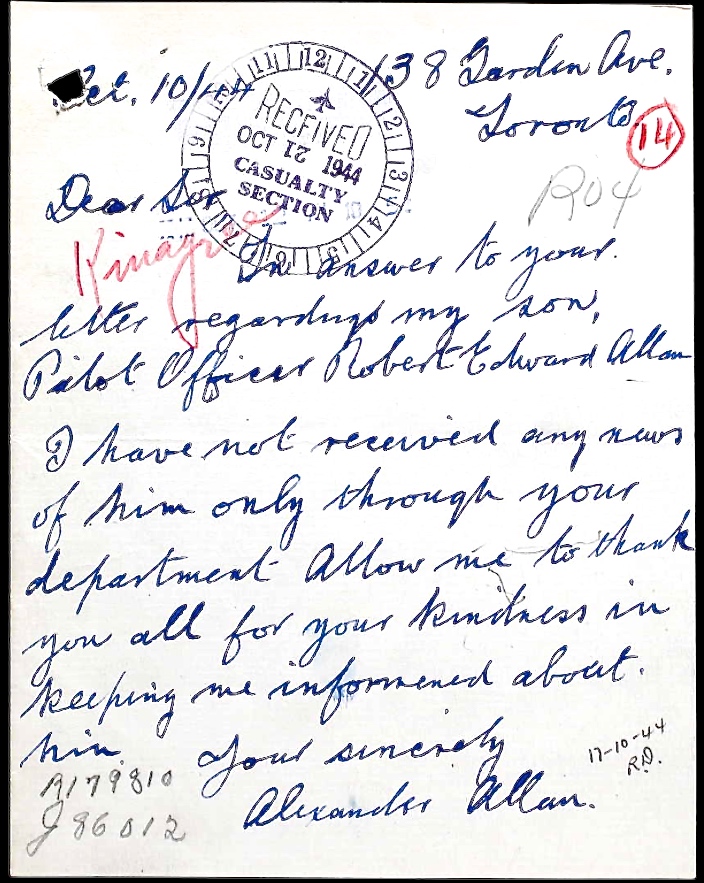 Oct. 10/44 138 Garden Ave.
Toronto
14
12 1 2 3 4 5 6 7 8 9 11
RECEIVED
OCT 12 1944
CASUALTY
SECTION
R04
Dear Sir
In answer to your
letter regardings my son,
Pilot Officer Robert Edward Allan
I have not received any news
of him only through your
department Allow me to thank
you all for your kindness in
keeping me informened about.
him. Your sincerely
17-10-44
R.D.
R179810
J86012
Alexander Allan.